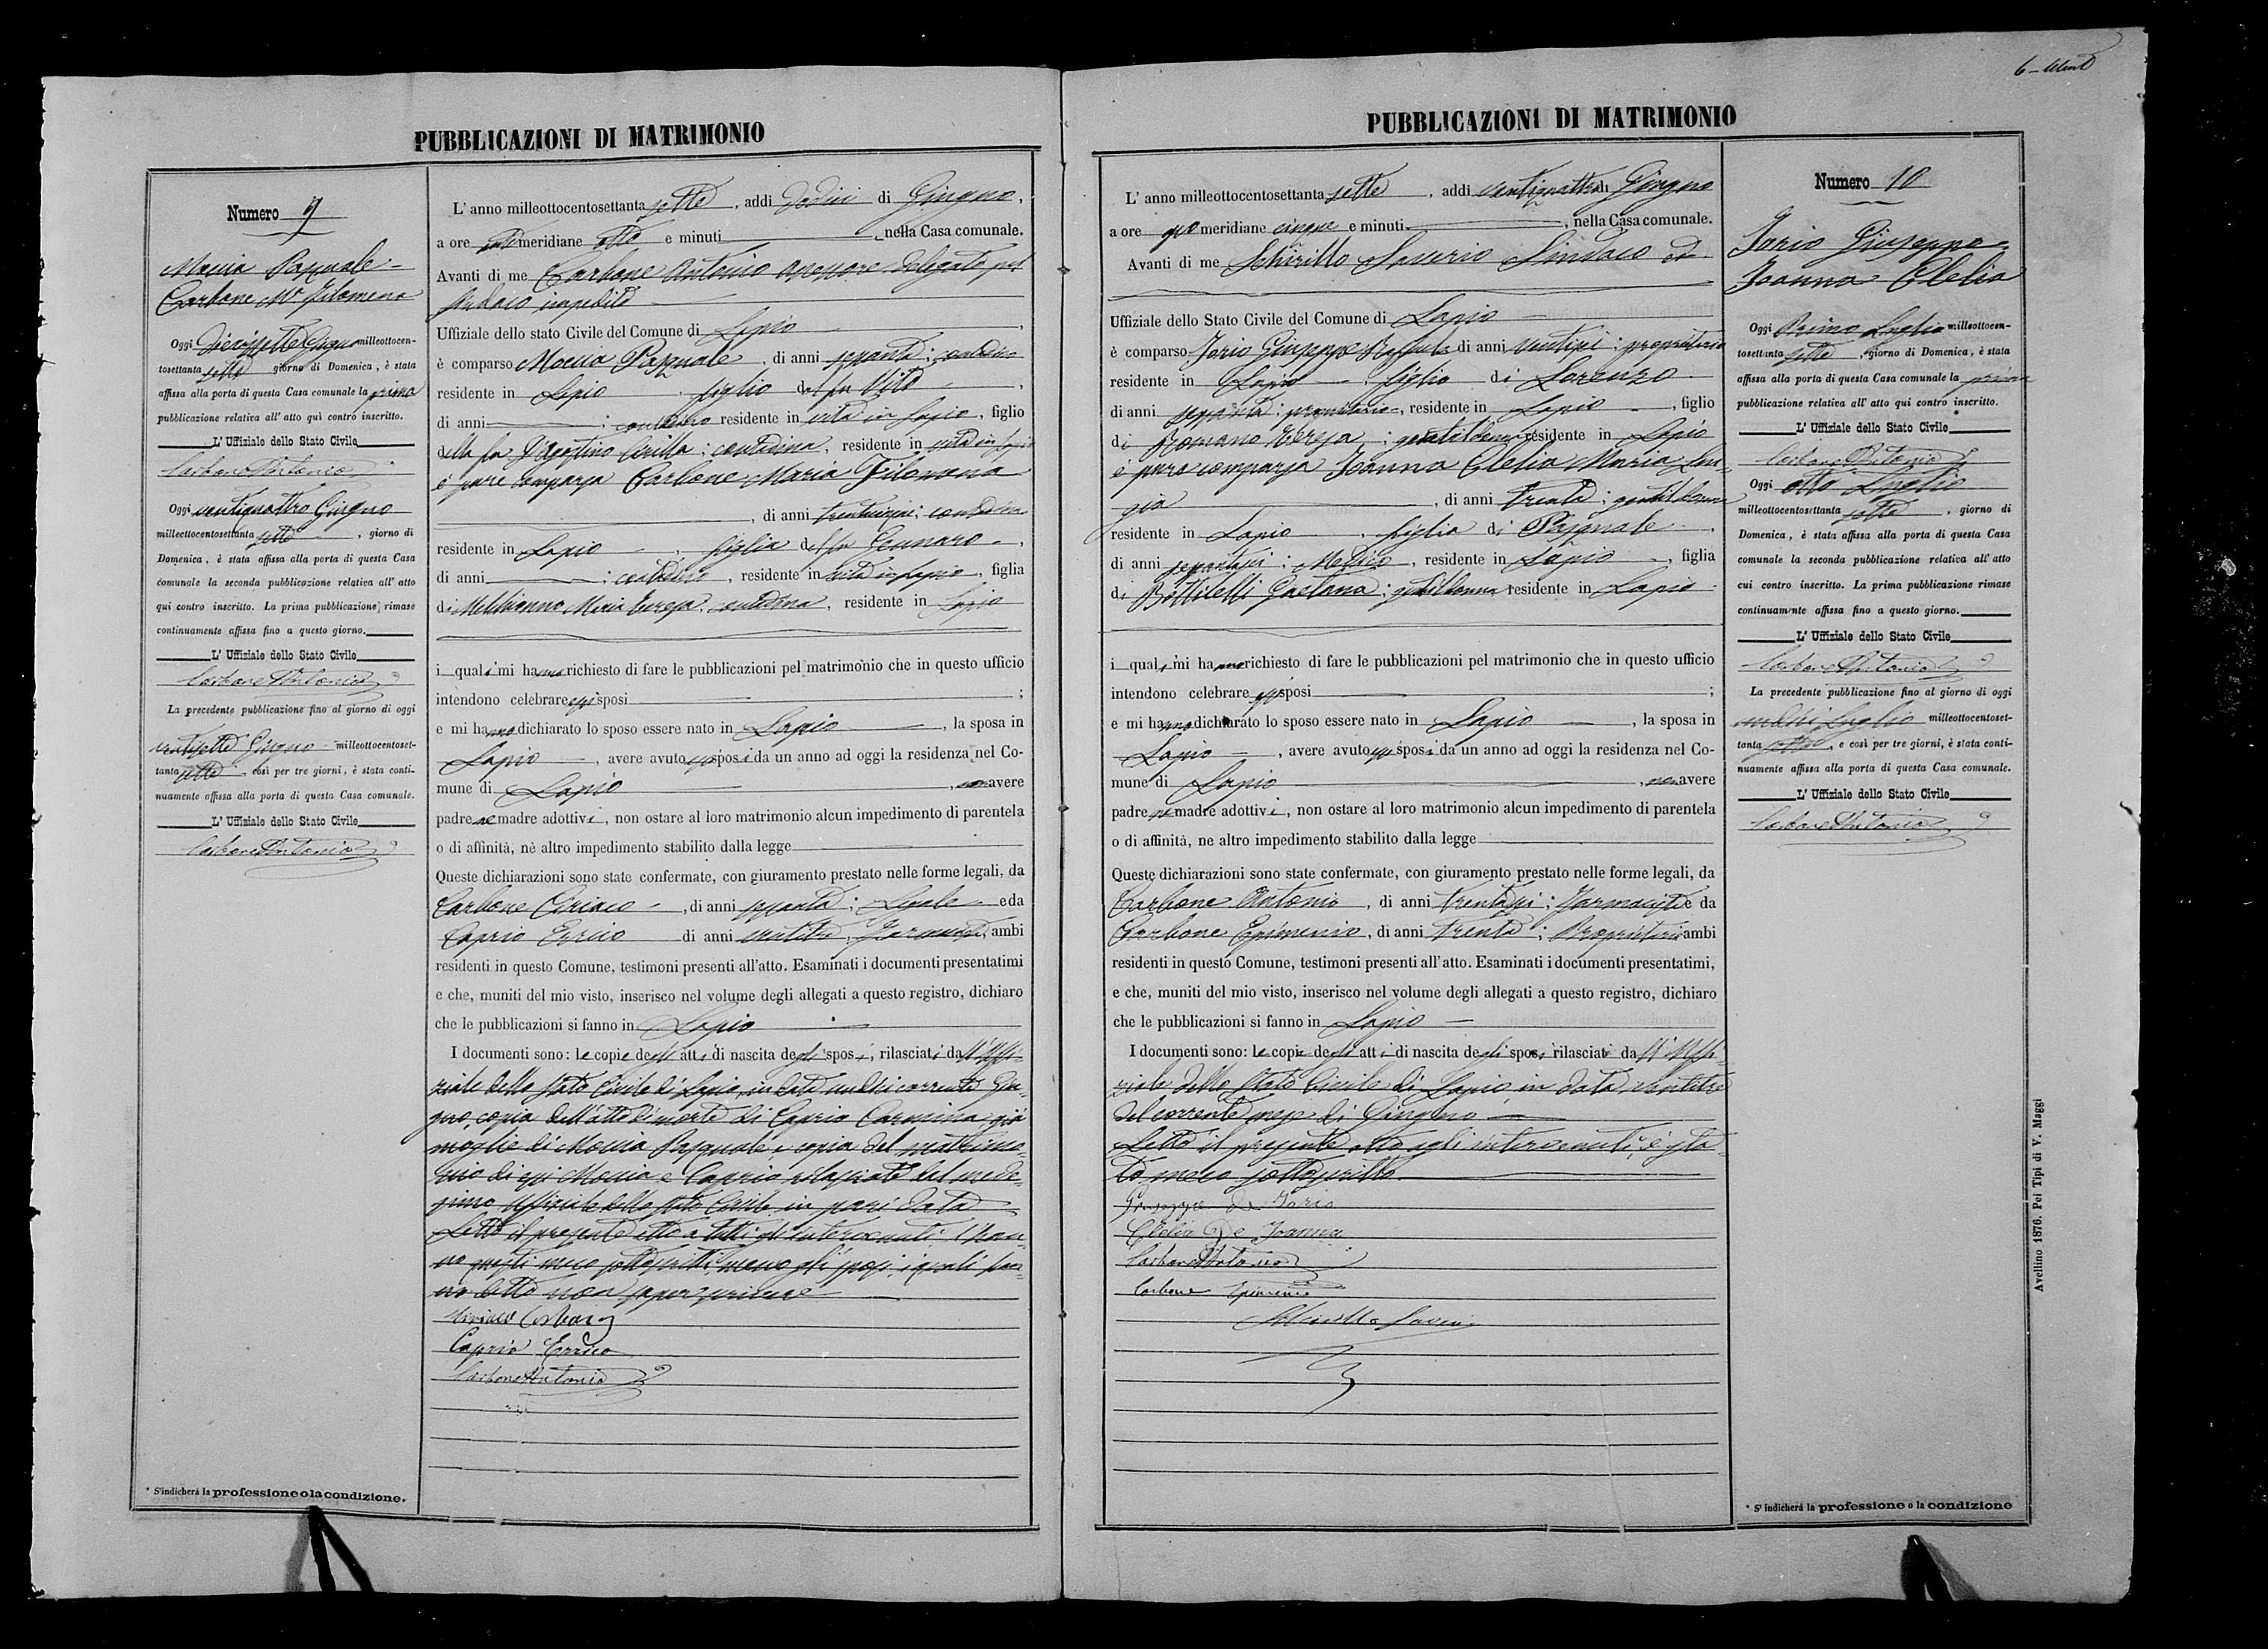 6
PUBBLICAZIONI DI MATRIMONIO
Numero 9
Moccia Pasquale
Carbone Mª Filomena
Oggi Diecisette Giugno milleottocen-
tosettanta sette giorno di Domenica, è stata
affissa alla porta di questa Casa comunale la prima
pubblicazione relativa all' atto quì contro inscritto.
L' Uffiziale dello Stato Civile
Carbone Antonio
Oggi ventiquattro Giugno
milleottocentosettanta sette, giorno di
Domenica, è stata affissa alla porta di questa Casa
comunale la seconda pubblicazione relativa all' atto
qui contro inscritto. La prima pubblicazione rimase
continuamente affissa fino a questo giorno.
L' Uffiziale dello Stato Civile
Carbone Antonio
La precedente pubblicazione fino al giorno di oggi
ventisette Giugno milleottocentoset-
tanta sette, così per tre giorni, è stata conti-
nuamente affissa alla porta di questa Casa comunale.
L' Uffiziale dello Stato Civile
Carbone Antonio
* S'indicherà la professione o la condizione.
L' anno milleottocentosettanta sette, addi dodici di Giugno,
a ore meridiane otto e minuti nella Casa comunale.
Avanti di me Carbone Antonio assessore delegato pel
Sindaco impedito
Uffiziale dello stato Civile del Comune di Lapio,
è comparso Moccia Pasquale, di anni sessanta; contadino
residente in Lapio, figlio del fu Vito,
di anni ; contadino residente in vita in Lapio, figlio
della fu D'Agostino Cirilla; contadina, residente in vita in Lapio
è pure comparsa Carbone Maria Filomena
, di anni trentacinque; contadina
residente in Lapio, figlia del fu Gennaro,
di anni ; contadino, residente in vita in Lapio, figlia
di Maria Teresa, contadina, residente in Lapio
i quali mi hanno richiesto di fare le pubblicazioni pel matrimonio che in questo ufficio
intendono celebrare essi sposi ;
e mi hanno dichiarato lo sposo essere nato in Lapio, la sposa in
Lapio, avere avuto essi sposi da un anno ad oggi la residenza nel Co-
mune di Lapio, non avere
padre nè madre adottivi, non ostare al loro matrimonio alcun impedimento di parentela
o di affinità, nè altro impedimento stabilito dalla legge
Queste dichiarazioni sono state confermate, con giuramento prestato nelle forme legali, da
Carbone Ciriaco, di anni sessanta; e da
Caprio Errico di anni ventitre, ambi
residenti in questo Comune, testimoni presenti all'atto. Esaminati i documenti presentatimi
e che, muniti del mio visto, inserisco nel volume degli allegati a questo registro, dichiaro
che le pubblicazioni si fanno in Lapio
I documenti sono: le copie degli atti di nascita degli sposi, rilasciati dall'Uffi-
ziale dello Stato Civile di Lapio, in data undici corrente Giu-
gno, copia dell'atto di morte di Caprio Carmina già
moglie di Moccia Pasquale, e copia del matrimo-
nio di essi Moccia e Caprio rilasciate dal mede-
simo Uffiziale dello Stato Civile in pari data
Letto il presente atto a tutti gl'intervenuti, l'han-
no questi meco sottoscritto, meno gli sposi, i quali han-
no detto non saper scrivere
Ciriaco Carbone
Caprio Errico
Carbone Antonio
PUBBLICAZIONI DI MATRIMONIO
L' anno milleottocentosettanta sette, addi ventiquattro di Giugno
a ore meridiane cinque e minuti, nella Casa comunale.
Avanti di me Schirillo Saverio Sindaco ed
Uffiziale dello Stato Civile del Comune di Lapio
è comparso Iorio Giuseppe Raffaele di anni ventisei; proprietario
residente in Lapio, figlio di Lorenzo
di anni sessanta; proprietario, residente in Lapio, figlio
di Romano Teresa; gentildonna residente in Lapio
è pure comparsa Ioanna Clelia Maria Lui-
gia, di anni trenta; gentildonna
residente in Lapio, figlia di Pasquale,
di anni sessantasei; Medico, residente in Lapio, figlia
di Bottilelli Gaetana; gentildonna residente in Lapio
i quali mi hanno richiesto di fare le pubblicazioni pel matrimonio che in questo ufficio
intendono celebrare essi sposi ;
e mi hanno dichiarato lo sposo essere nato in Lapio, la sposa in
Lapio, avere avuto essi sposi da un anno ad oggi la residenza nel Co-
mune di Lapio, non avere
padre nè madre adottivi, non ostare al loro matrimonio alcun impedimento di parentela
o di affinità, ne altro impedimento stabilito dalla legge
Queste dichiarazioni sono state confermate, con giuramento prestato nelle forme legali, da
Carbone Antonio, di anni trentasei; Farmacista e da
Carbone Epimenio, di anni trenta; Proprietario ambi
residenti in questo Comune, testimoni presenti all'atto. Esaminati i documenti presentatimi,
e che, muniti del mio visto, inserisco nel volume degli allegati a questo registro, dichiaro
che le pubblicazioni si fanno in Lapio
I documenti sono: le copie degli atti di nascita degli sposi rilasciati dall'Uffi-
ziale dello Stato Civile di Lapio in data ventitre
del corrente mese di Giugno
Letto il presente atto agli intervenuti, è sta-
to meco sottoscritto
Giuseppe de Iorio
Clelia De Joanna
Carbone Antonio
Carbone Epimenio
Schirillo Saverio
Numero 10
Iorio Giuseppe
Ioanna Clelia
Oggi Primo Luglio milleottocen-
tosettanta sette, giorno di Domenica, è stata
affissa alla porta di questa Casa comunale la prima
pubblicazione relativa all' atto qui contro inscritto.
L' Uffiziale dello Stato Civile
Carbone Antonio
Oggi otto Luglio
milleottocentosettanta sette, giorno di
Domenica, è stata affissa alla porta di questa Casa
comunale la seconda pubblicazione relativa all' atto
cui contro inscritto. La prima pubblicazione rimase
continuamente affissa fino a questo giorno.
L' Uffiziale dello Stato Civile
Carbone Antonio
La precedente pubblicazione fino al giorno di oggi
undici Luglio milleottocentoset-
tanta sette, e così per tre giorni, è stata conti-
nuamente affissa alla porta di questa Casa comunale.
L' Uffiziale dello Stato Civile
Carbone Antonio
* S' indicherà la professione o la condizione
Avellino 1876. Pei Tipi di V. Maggi